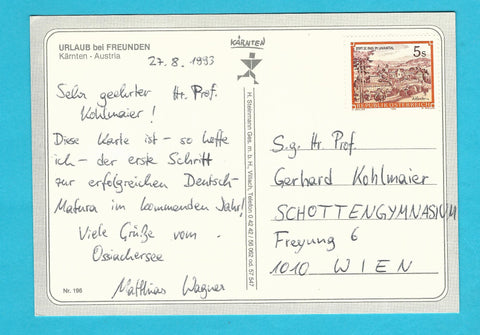 URLAUB bei FREUNDEN
Kärnten - Austria
27.8.1993
Sehr geehrter Hr. Prof.
Kohlmaier!
Diese Karte ist – so hoffe
ich – der erste Schritt
zur erfolgreichen Deutsch-
Matura im kommenden Jahr!
Viele Grüße vom
Ossiachersee
Matthias Wagner
Nr. 196
KÄRNTEN
H. Steinmann Ges. m. b. H., Villach, Telefon 0 42 42 / 56 062 od. 57 547
5s
REPUBLIK ÖSTERREICH
S.g. Hr. Prof.
Gerhard Kohlmaier
SCHOTTENGYMNASIUM
Freyung 6
1010 WIEN